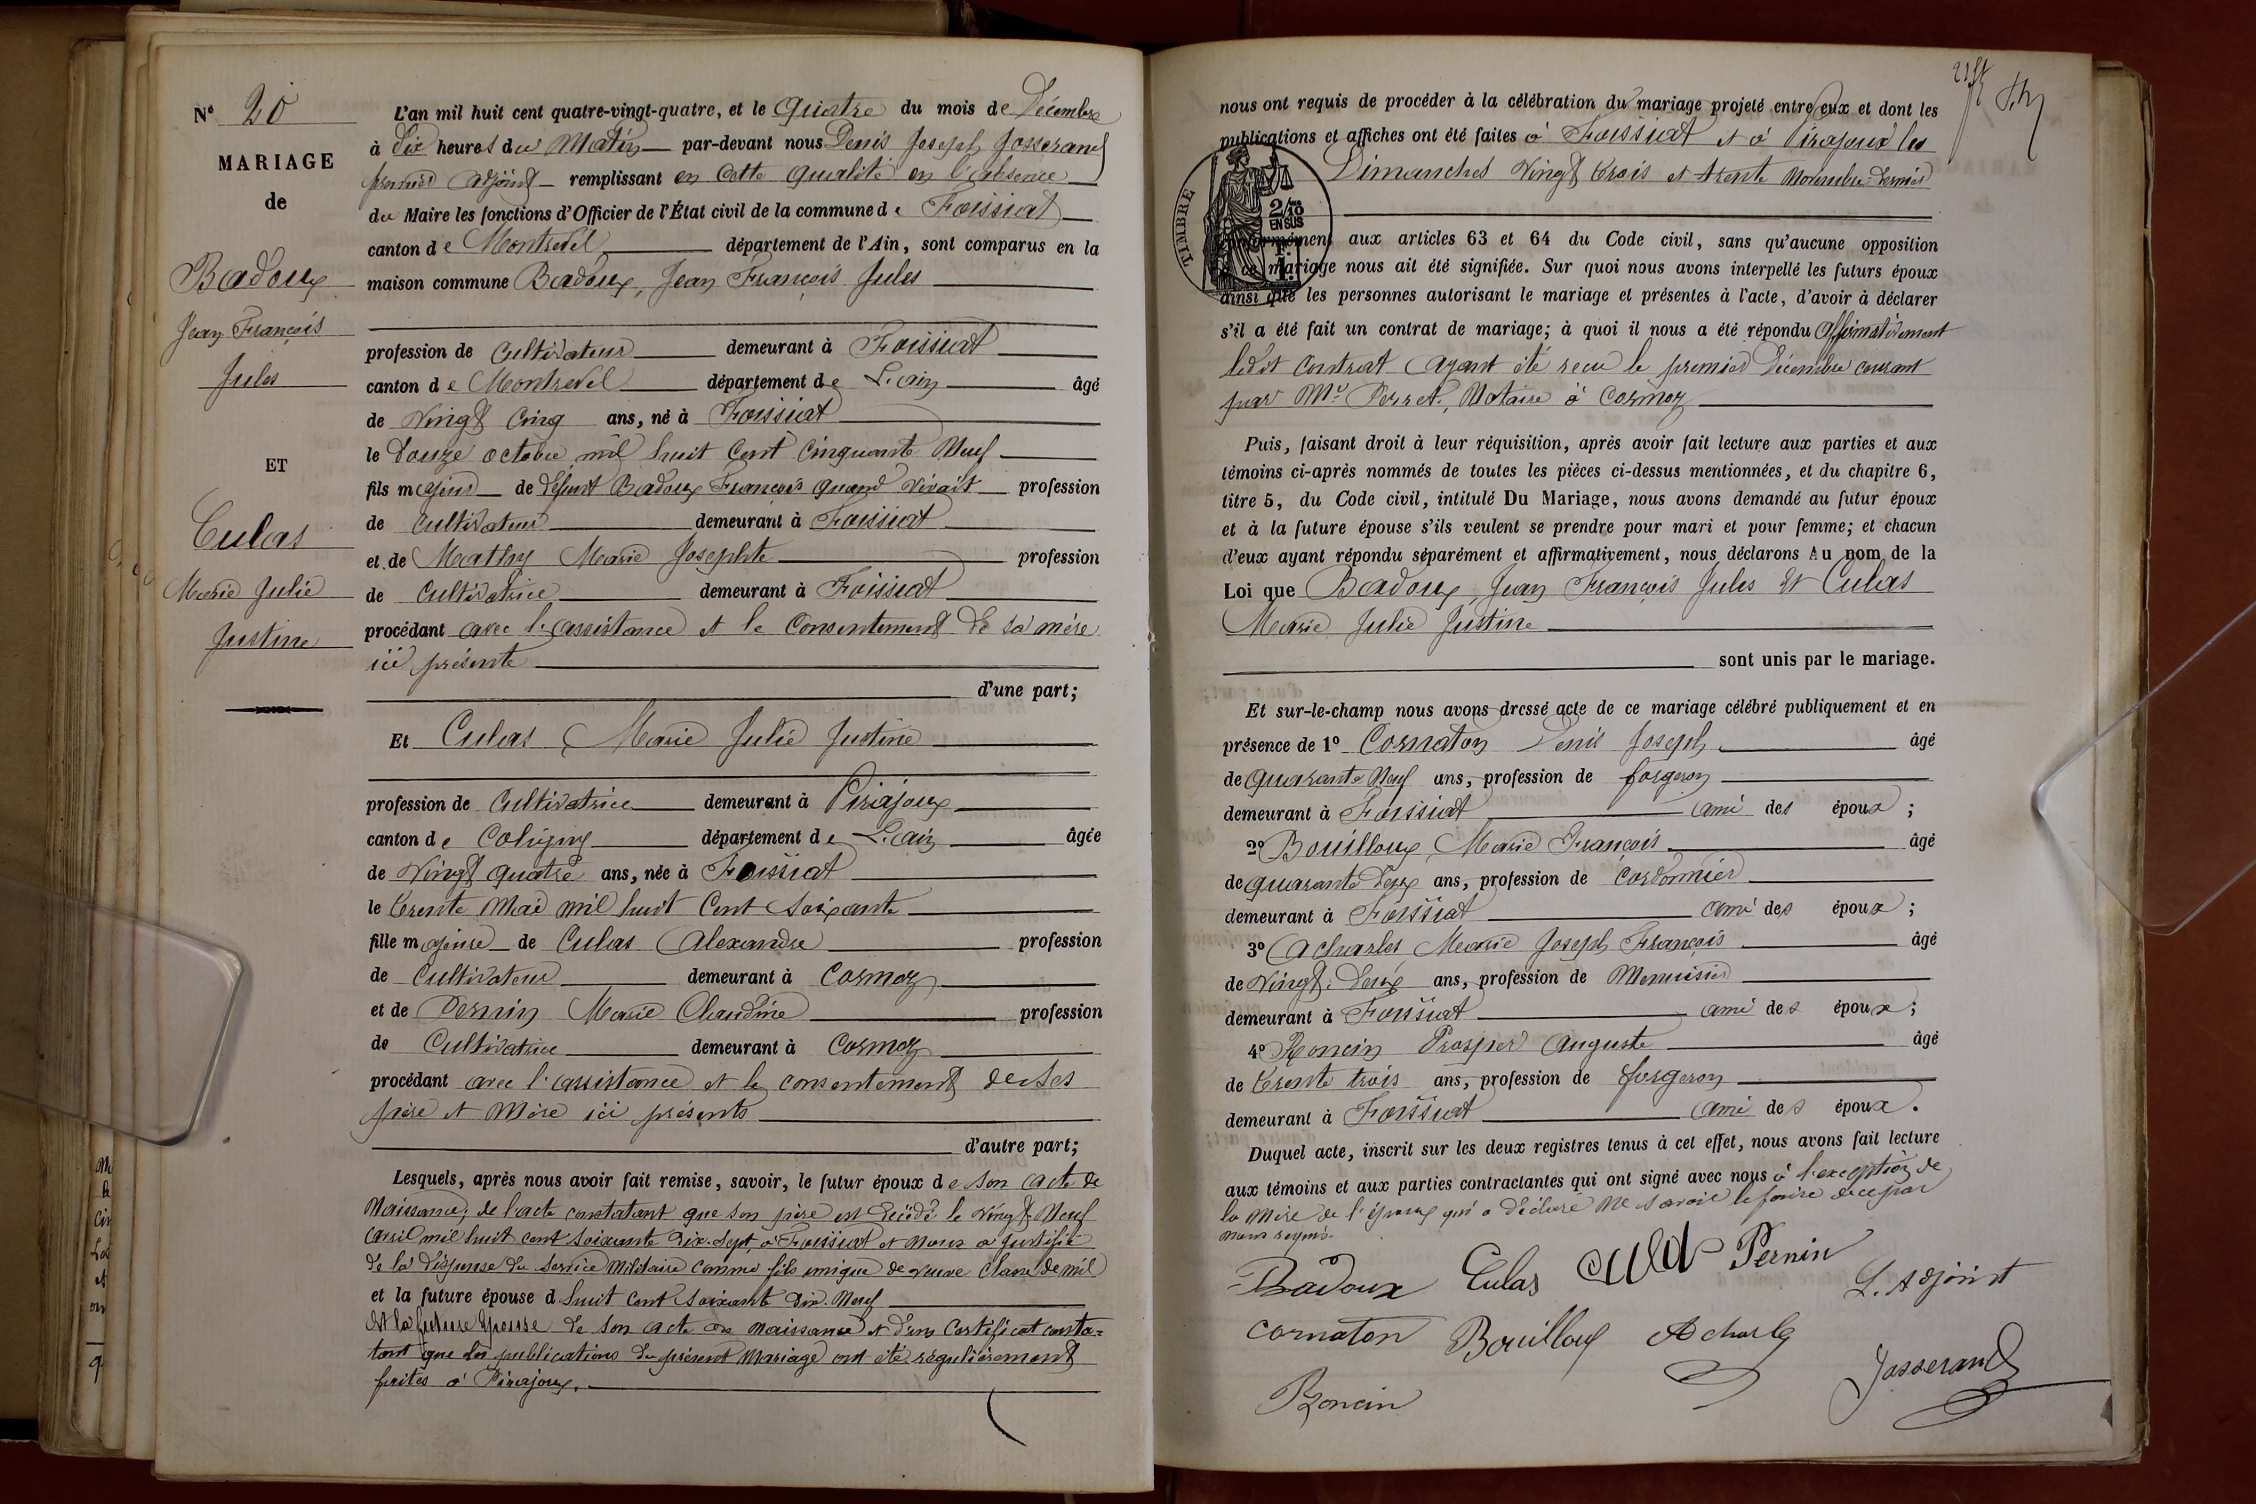 N° 20
MARIAGE
de
Badoux
Jean François
Jules
ET
Culas
Marie Julie
Justine
L'an mil huit cent quatre-vingt-quatre, et le Quatre du mois de Décembre
à Dix heures du Matin par-devant nous Denis Joseph Josserand
premier adjoint remplissant en cette qualité en l'absence
du Maire les fonctions d'Officier de l'État civil de la commune de Foissiat
canton de Montrevel département de l'Ain, sont comparus en la
maison commune Badoux, Jean François Jules
profession de Cultivateur demeurant à Foissiat
canton de Montrevel département de L'ain âgé
de Vingt Cinq ans, né à Foissiat
le Douze octobre mil huit Cent Cinquante Neuf
fils majeur de défunt Badoux François quand vivait profession
de Cultivateur demeurant à Foissiat
et de Mathy Marie Josephte profession
de Cultivatrice demeurant à Foissiat
procédant avec l'assistance et le Consentement de sa mère
ici présente
d'une part;
Et Culas, Marie Julie Justine
profession de Cultivatrice demeurant à Pirajoux
canton de Coligny département de L'ain âgée
de Vingt quatre ans, née à Foissiat
le trente Mai mil huit Cent Soixante
fille majeure de Culas Alexandre profession
de Cultivateur demeurant à Cormoz
et de Pernin Marie Claudine profession
de Cultivatrice demeurant à Cormoz
procédant avec l'assistance et le consentement de ses
père et Mère ici présents
d'autre part;
Lesquels, après nous avoir fait remise, savoir, le futur époux de son acte de
Naissance; de l'acte constatant que son père est décédé le Vingt Neuf
avril mil huit cent soixante Dix-Sept, à Foissiat et Nous a justifié
de la dispense du service militaire comme fils unique de veuve classe de mil
et la future épouse d huit cent soixante dix-Neuf
Et la future Epouse de son acte de naissance et d'un Certificat consta=
tant que les publications du présent Mariage ont été régulièrement
faites à Pirajoux.
nous ont requis de procéder à la célébration du mariage projeté entre eux et dont les
publications et affiches ont été faites à Foissiat et à Pirajoux les
Dimanches Vingt trois et trente Novembre dernier
TIMBRE
2/10es
EN SUS
conformément aux articles 63 et 64 du Code civil, sans qu'aucune opposition
à ce mariage nous ait été signifiée. Sur quoi nous avons interpellé les futurs époux
ainsi que les personnes autorisant le mariage et présentes à l'acte, d'avoir à déclarer
s'il a été fait un contrat de mariage; à quoi il nous a été répondu Affirmativement
ledit contrat ayant été reçu le premier Décembre courant
par Me Perret, Notaire à Cormoz
Puis, faisant droit à leur réquisition, après avoir fait lecture aux parties et aux
témoins ci-après nommés de toutes les pièces ci-dessus mentionnées, et du chapitre 6,
titre 5, du Code civil, intitulé Du Mariage, nous avons demandé au futur époux
et à la future épouse s'ils veulent se prendre pour mari et pour femme; et chacun
d'eux ayant répondu séparément et affirmativement, nous déclarons Au nom de la
Loi que Badoux, Jean François Jules Et Culas
Marie Julie Justine
sont unis par le mariage.
Et sur-le-champ nous avons dressé acte de ce mariage célébré publiquement et en
présence de 1° Cornaton Denis Joseph âgé
de quarante Neuf ans, profession de forgeron
demeurant à Foissiat ami des époux;
2° Bouilloux, Marie François âgé
de quarante Deux ans, profession de Cordonnier
demeurant à Foissiat ami des époux;
3° Acharles, Marie Joseph François âgé
de Vingt Deux ans, profession de Menuisier
demeurant à Foissiat ami des époux;
4° Roncin Prosper Auguste âgé
de trente trois ans, profession de forgeron
demeurant à Foissiat ami des époux.
Duquel acte, inscrit sur les deux registres tenus à cet effet, nous avons fait lecture
aux témoins et aux parties contractantes qui ont signé avec nous à l'exception de
la Mère de l'époux qui a déclaré ne savoir le faire de ce par
nous requis.
Badoux Culas Culas Pernin
L'Adjoint
Cornaton Bouilloux Acharles
Josserand
Roncin